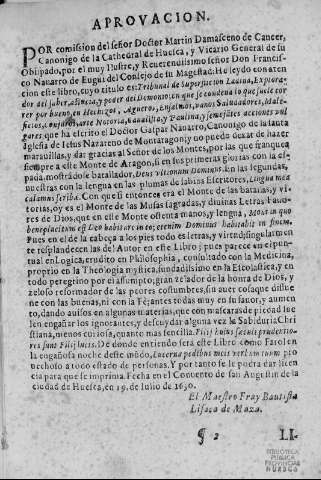 APROVACION.
POR comission del señor Doctor Martin Damasceno de Cancer,
Canonigo de la Cathedral de Huesca, y Vicario General de su
Obispado, por el muy Ilustre, y Reverendissimo señor Don Francis-
co Navarro de Eugui del Consejo de su Magestad: He leydo con aten
cion este libro, cuyo titulo es: Tribunal de Superstición Ladina, Explora-
dor del saber, astucia, y poder del Demonio: en que se condena lo que suele cor
rer por bueno, en Hechizos, Agueros, Ensalmos, vanos Saludadores, Male-
ficios, Conjuros, arte Notoria, Cavalista, y Paulina, y semejantes acciones vul
gares: que ha escrito el Doctor Gaspar Navarro, Canonigo de la santa
Iglesia de Iesus Nazareno de Montaragon: y no puedo dexar de hazer
maravillas, y dar gracias al Señor de los Montes, por las que franquea
siempre a este Monte de Aragon, si en sus primeras glorias con la es-
pada, mostrandose batallador, Deus ultionum Dominus. En las segundas,
nuestras con la lengua en las plumas de sabios Escritores, Lingua mea
calamus scribæ. Con que si entonces era el Monte de las batallas, y vi-
torias, oy es el Monte de las Musas sagradas, y divinas Letras Favo-
res de Dios, que en este Monte ostenta manos, y lengua, Mons in quo
beneplacitum est Deo habitare in eo; etenim Dominus habitabit in finem.
Pues en el de cabeça a los pies todo es letras, y virtud; singularmen
te resplandecen las del Autor en este Libro; pues parece vn espun-
tual en Logica, erudito en Philosophia, consultado con la Medicina,
proprio en la Theologia mystica, fundadissimo en la Escolastica, y en
todo peregrino por el assumpto, gran zelador de la honra de Dios, y
zeloso reformador de las pobres costumbres, sin aver cosa que disue
ne con las buenas, ni con la Fè; antes todas muy en su favor, y aumen
to, dando avisos en algunas materias, que con mascaras de piedad sue
len engañar los ignorantes, y descuydar alguna vez la Sabiduria Chri
stiana, menos curiosa, quanto mas sencilla. Filij huius sæculi prudentio-
res sunt Filijs lucis. De donde entiendo será este Libro como Farol en
la engañosa noche deste mûdo, Lucerna pedibus meis verbum tuum pro
vechoso a todo estado de personas. Y por tanto se le podra dar licen
cia para que se imprima. Fecha en el Convento de san Augustin de la
ciudad de Huesca, en 19. de Iulio de 1630.
El Maestro Fray Bautista
Lissaca de Maza.
¶ 2
LI-
BIBLIOTECA
PUBLICA
PROVINCIAL
HUESCA